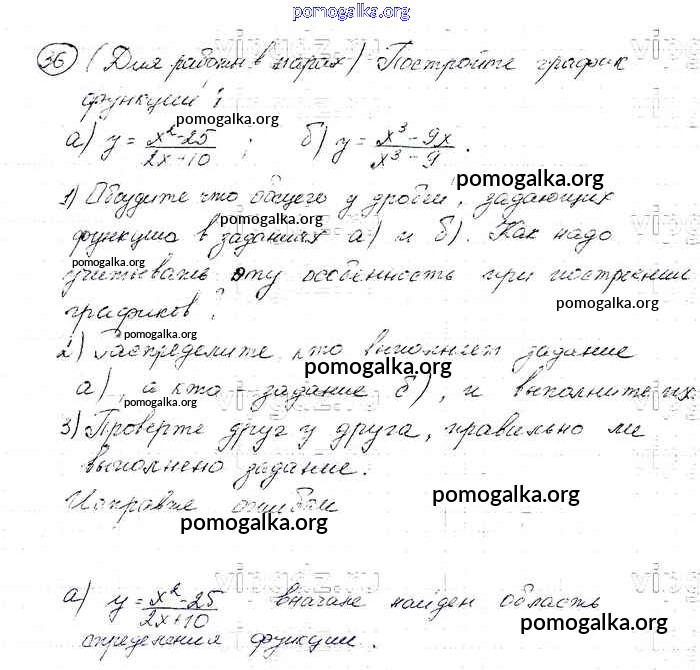 pomogalka.org
36 (Для работы в парах) Постройте график
функции:
pomogalka.org
а) y = x² - 25 / 2x + 10 ; б) y = x³ - 9x / x³ - 9 .
pomogalka.org
1) Обсудите что общего у дробей, задающих
pomogalka.org
функцию в заданиях а) и б). Как надо
pomogalka.org
учитывать эту особенность при построении
pomogalka.org
графиков?
pomogalka.org
2) Распределите, кто выполняет задание
pomogalka.org
а), а кто - задание б), и выполните их
pomogalka.org
3) Проверте друг у друга, правильно ли
выполнено задание.
Исправте ошибки
pomogalka.org
pomogalka.org
а) y = x² - 25 / 2x + 10 вначале найдем область
pomogalka.org
определения функции.